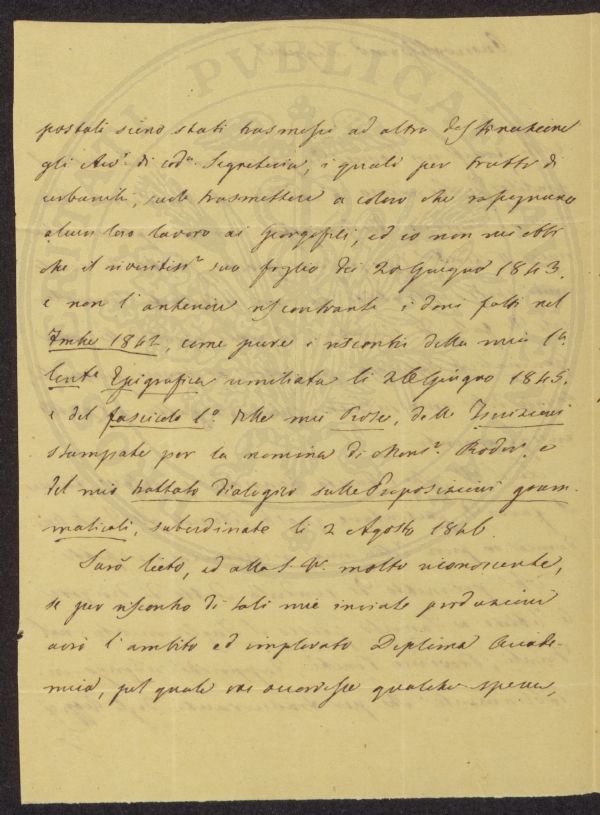 PVBLICA
postali sieno stati trasmessi ad altra destinazione
gli Avv.ⁱ di cod.ª Segreteria, i quali per tratto di
urbanità, suole trasmettere a coloro che rassegnano
alcun loro lavoro ai Georgofili, ed io non mi ebbi
che il riveritiss.º suo foglio dei 20 Giugno 1843.
e non l'anteriore riscontrante i doni fatti nel
7mbre 1842, come pure i riscontri della mia 1ª
Epigrafica umiliata li 26 Giugno 1845.
e del fascicolo 1.º delle mie Prose, delle Iscrizioni
stampate per la nomina di Mons.ʳ e
del mio trattato dialogico sulle Preposizioni gram-
maticali, subordinate li 2 Agosto 1846.
Sarò lieto, ed alla S. V. molto riconoscente,
se per riscontro di tali mie inviate produzioni
avrò l'ambito ed implorato Diploma Accade-
mico, pel quale ove occorresse qualche spesa,